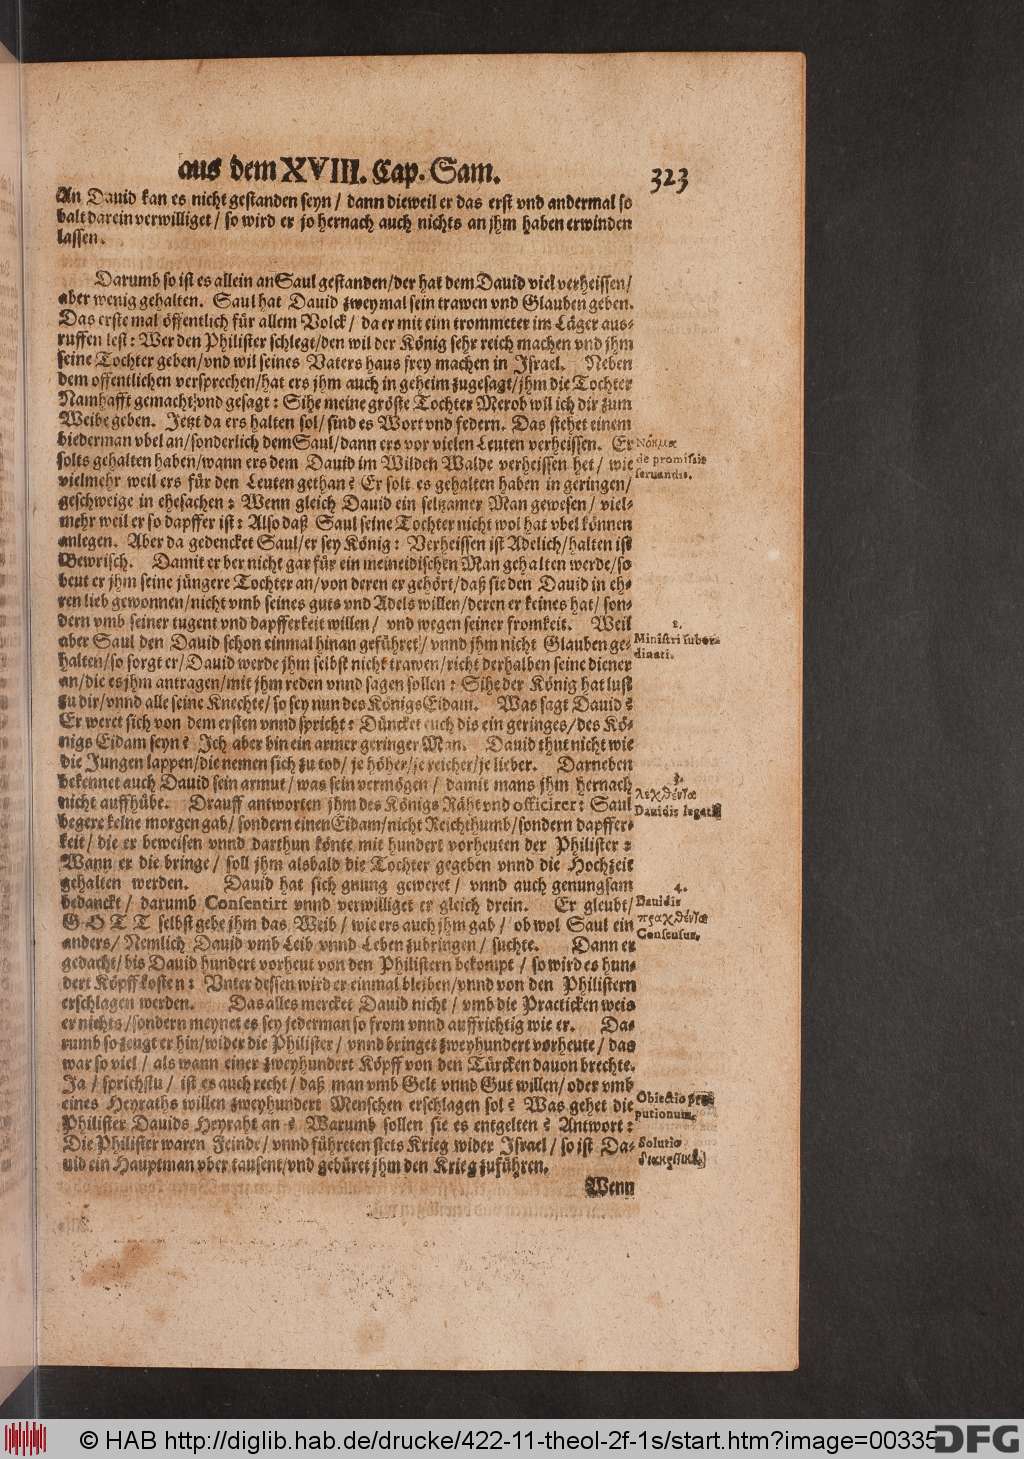 aus dem XVIII. Cap. Sam. 323
An Dauid kan es nicht gestanden seyn / dann dieweil er das erst vnd andermal so
balt darein verwilliget / so wird er jo hernach auch nichts an jhm haben erwinden
lassen.
Darumb so ist es allein an Saul gestanden/der hat dem Dauid viel verheissen/
aber wenig gehalten. Saul hat Dauid zweymal sein trawen vnd Glauben geben.
Das erste mal öffentlich für allem Volck / da er mit eim trommeter im Läger aus-
ruffen lest: Wer den Philister schlegt/den wil der König sehr reich machen vnd jhm
seine Tochter geben/vnd wil seines Vaters haus frey machen in Israel. Neben
dem offentlichen versprechen/hat ers jhm auch in geheim zugesagt/jhm die Tochter
Namhafft gemacht/vnd gesagt: Sihe meine gröste Tochter Merob wil ich dir zum
Weibe geben. Jetzt da ers halten sol/sind es Wort vnd federn. Das stehet einem
biederman vbel an/sonderlich dem Saul/dann ers vor vielen Leuten verheissen. Er
solts gehalten haben/wann ers dem Dauid im Wilden Walde verheissen het / wie
vielmehr weil ers für den Leuten gethan? Er solt es gehalten haben in geringen/
geschweige in ehesachen: Wenn gleich Dauid ein seltzamer Man gewesen / viel-
mehr weil er so dapffer ist: Also daß Saul seine Tochter nicht wol hat vbel können
anlegen. Aber da gedencket Saul/er sey König: Verheissen ist Adelich/halten ist
Bewrisch. Damit er ber nicht gar für ein meineidischen Man gehalten werde/so
beut er jhm seine jüngere Tochter an/von deren er gehört/daß sie den Dauid in eh-
ren lieb gewonnen/nicht vmb seines guts vnd Adels willen/deren er keines hat/ son-
dern vmb seiner tugent vnd dapfferkeit willen / vnd wegen seiner fromkeit. Weil
aber Saul den Dauid schon einmal hinan geführet/ vnnd jhm nicht Glauben ge-
halten/so sorgt er/Dauid werde jhm selbst nicht trawen/richt derhalben seine diener
an/die es jhm antragen/mit jhm reden vnnd sagen sollen: Sihe der König hat lust
zu dir/vnnd alle seine Knechte/so sey nun des Königs Eidam. Was sagt Dauid?
Er weret sich von dem ersten vnnd spricht: Düncket euch dis ein geringes/des Kö-
nigs Eidam seyn? Jch aber bin ein armer geringer Man. Dauid thut nicht wie
die Jungen lappen/die nemen sich zu tod/ je höher/je reicher/je lieber. Darneben
bekennet auch Dauid sein armut/was sein vermögen / damit mans jhm hernach
nicht auffhübe. Drauff antworten jhm des Königs Räht vnd officirer: Saul
begere keine morgengab/sondern einen Eidam/nicht Reichthumb/sondern dapffer-
keit/ die er beweisen vnnd darthun könte mit hundert vorheuten der Philister:
Wann er die bringe / soll jhm alsbald die Tochter gegeben vnnd die Hochzeit
gehalten werden. Dauid hat sich gnung geweret / vnnd auch genungsam
bedanckt / darumb Consentirt vnnd verwilliget er gleich drein. Er gleubt/
GOTT selbst gebe jhm das Weib / wie ers auch jhm gab / ob wol Saul ein
anders/ Nemlich Dauid vmb Leib vnnd Leben zubringen / suchte. Dann er
gedacht/bis Dauid hundert vorheut von den Philistern bekompt / so wird es hun-
dert Köpff kosten: Vnter dessen wird er einmal bleiben/vnnd von den Philistern
erschlagen werden. Das alles mercket Dauid nicht / vmb die Practicken weis
er nichts/sondern meynet es sey jederman so from vnnd auffrichtig wie er. Da-
rumb so zeugt er hin/wider die Philister/ vnnd bringet zweyhundert vorheute / das
war so viel / als wann einer zweyhundert Köpff von den Türcken dauon brechte.
Ja / sprichstu / ist es auch recht / daß man vmb Gelt vnnd Gut willen/ oder vmb
eines Heyraths willen zweyhundert Menschen erschlagen sol? Was gehet die
Philister Dauids Heyraht an? Warumb sollen sie es entgelten? Antwort:
Die Philister waren Feinde/ vnnd führeten stets Krieg wider Israel / so ist Da-
uid ein Hauptman vber tausent/vnd gebüret jhm den Krieg zuführen.
Wenn
de promissis
seruandis.
2.
Ministri subor-
dinati.
3.
λεχθέντα
Dauidis legatis
4.
Dauidis
πραχθέντα
Consensus.
Obiectio
putionum.
Solutio
© HAB http://diglib.hab.de/drucke/422-11-theol-2f-1s/start.htm?image=00335
DFG